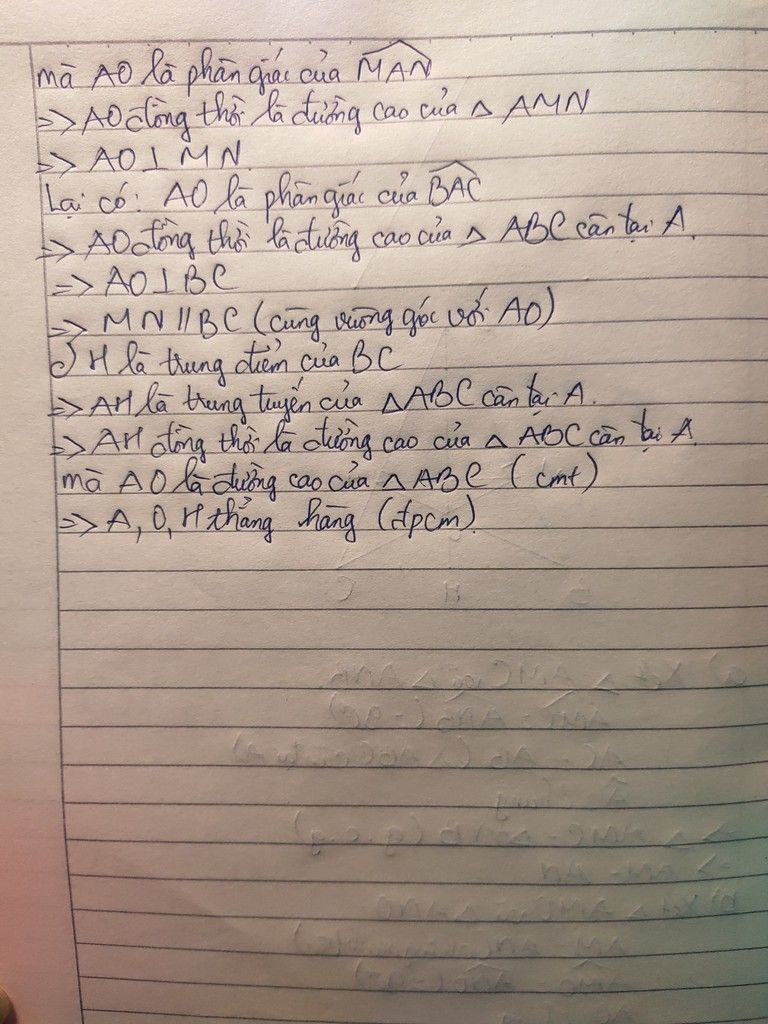 mà AO là phân giác của MAN
=> AO đồng thời là đường cao của △ AMN
=> AO ⊥ MN
Lại có: AO là phân giác của BAC
=> AO đồng thời là đường cao của △ ABC cân tại A.
=> AO ⊥ BC
=> MN // BC (cùng vuông góc với AO)
c) H là trung điểm của BC
=> AH là trung tuyến của △ABC cân tại A.
=> AH đồng thời là đường cao của △ ABC cân tại A
mà AO là đường cao của △ ABC (cmt)
=> A, O, H thẳng hàng (đpcm)